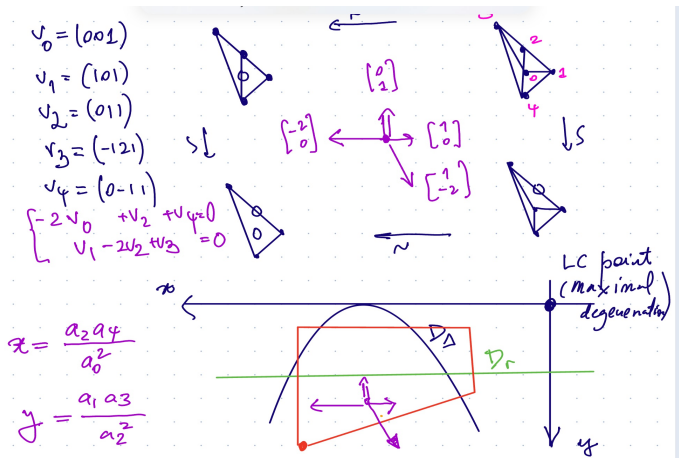 v₀ = (001)
v₁ = (101)
v₂ = (011)
v₃ = (-121)
v₄ = (0-11)
{ -2v₀ +v₂ +v₄=0
v₁ -2v₂ +v₃ =0
x = a₂a₄ / a₀²
y = a₁a₃ / a₂²
0
S↓
r
[0 1]
[-2 0]
[1 0]
[1 -2]
2
1
0
4
↓S
0
0
0
~
LC point
(maximal
degeneration)
x
D_Δ
D_r
y